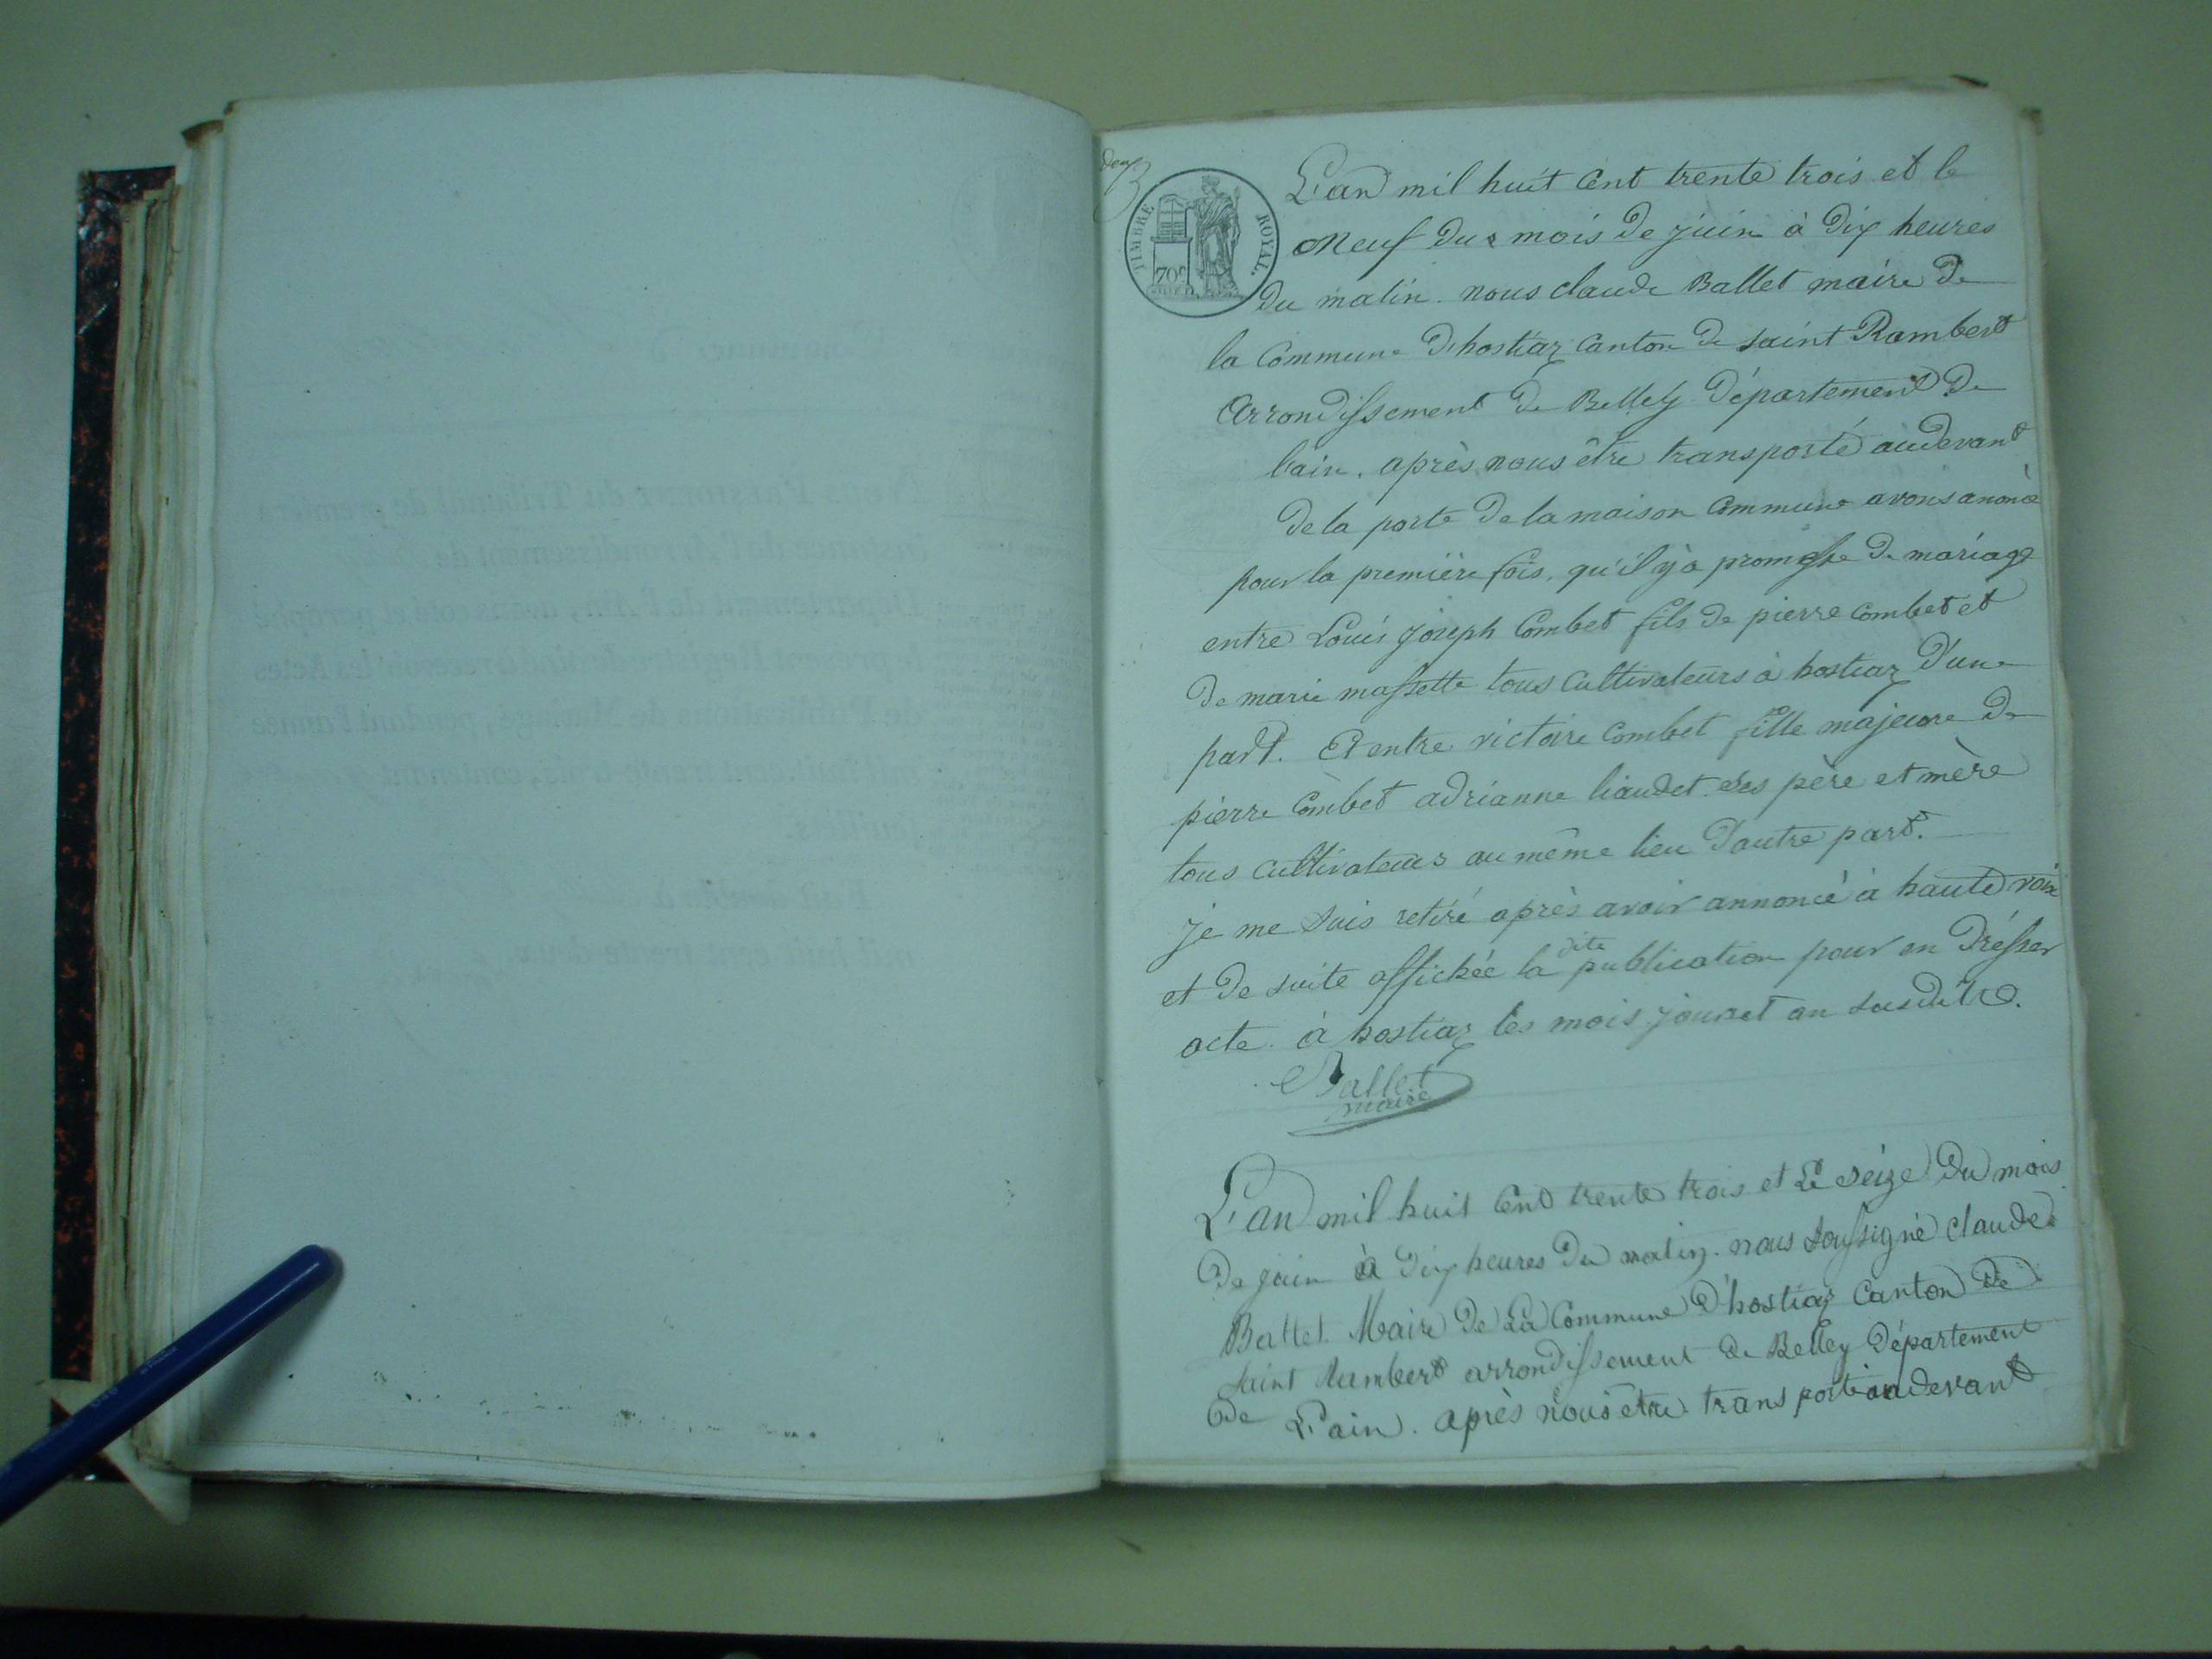 deux
TIMBRE ROYAL.
70c
L'an mil huit cent trente trois et le
neuf du mois de juin à dix heures
du matin. nous claude Ballet maire de
la Commune d'hostiaz canton de saint Rambert
Arrondissement de Belley Département de
l'ain. après nous être transporté audevant
de la porte de la maison commune avons anoncé
pour la première fois, qu'il y a promesse de mariage
entre Louis joseph Combet fils de pierre combet et
de marie massette tous cultivateurs à hostiaz d'une
part. Et entre victoire Combet fille majeure de
pierre Combet adrianne liaudet ses père et mère
tous cultivateurs au même lieu d'autre part.
je me suis retiré après avoir annoncé à haute voix
et de suite affichée la dite publication pour en drésser
acte. à hostiaz les mois jour et an susdit.
Ballet
maire
L'an mil huit cent trente trois et Le seize du mois
de juin à dix heures du matin. nous soussigné claude
Ballet Maire de La Commune d'hostiaz canton de
saint Rambert arrondissement de Belley département
de L'ain. après nous être transporté audevant